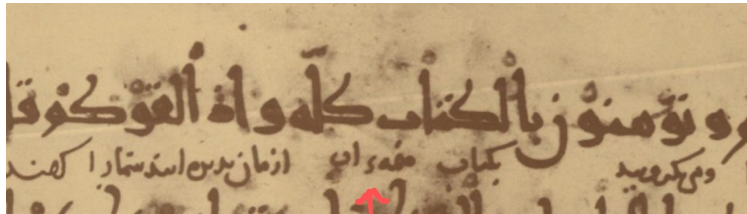 و تؤمنون بالكتاب كله واذا لقوكم قا
ومی بکروید بکتاب همهء ان ازمان شمارا کفتند